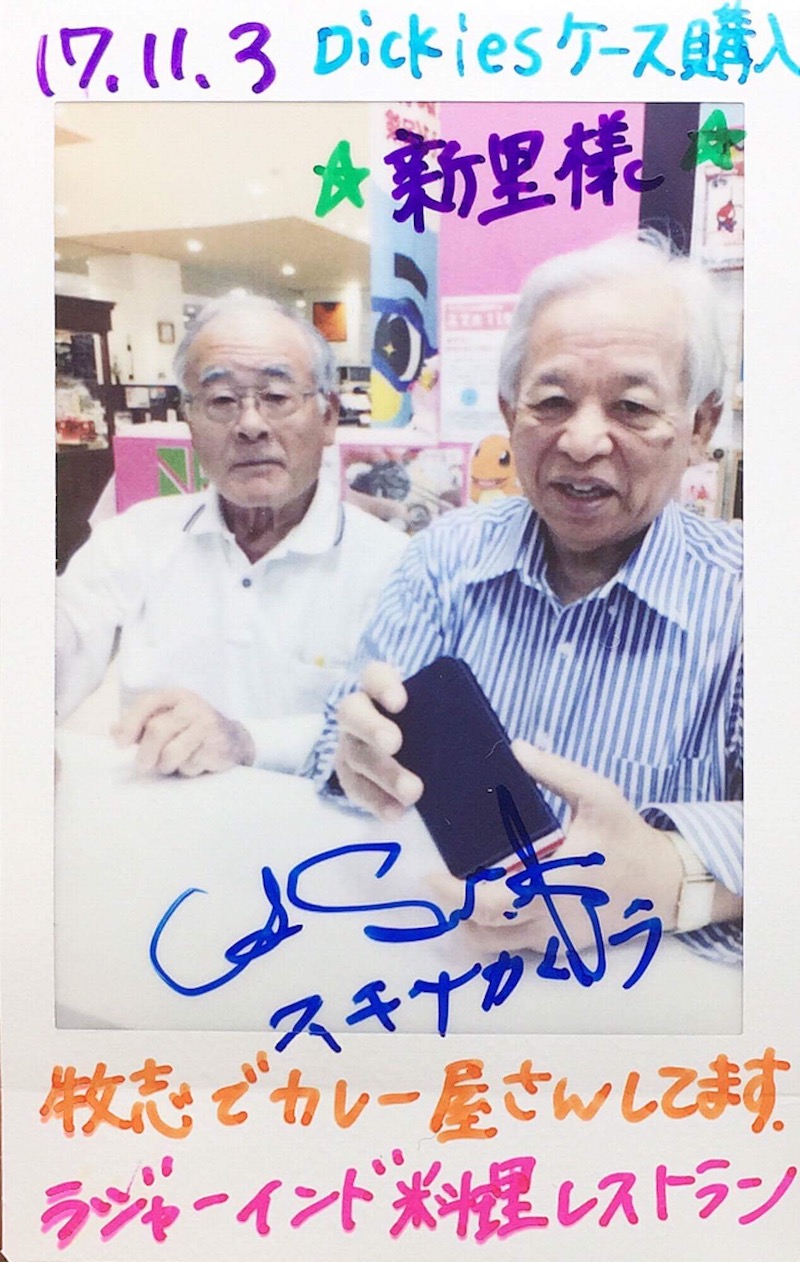 17.11.3 Dickiesケース購入
☆新里様☆
スキナカムラ
牧志でカレー屋さんしてます.
ラジャーインド料理レストラン